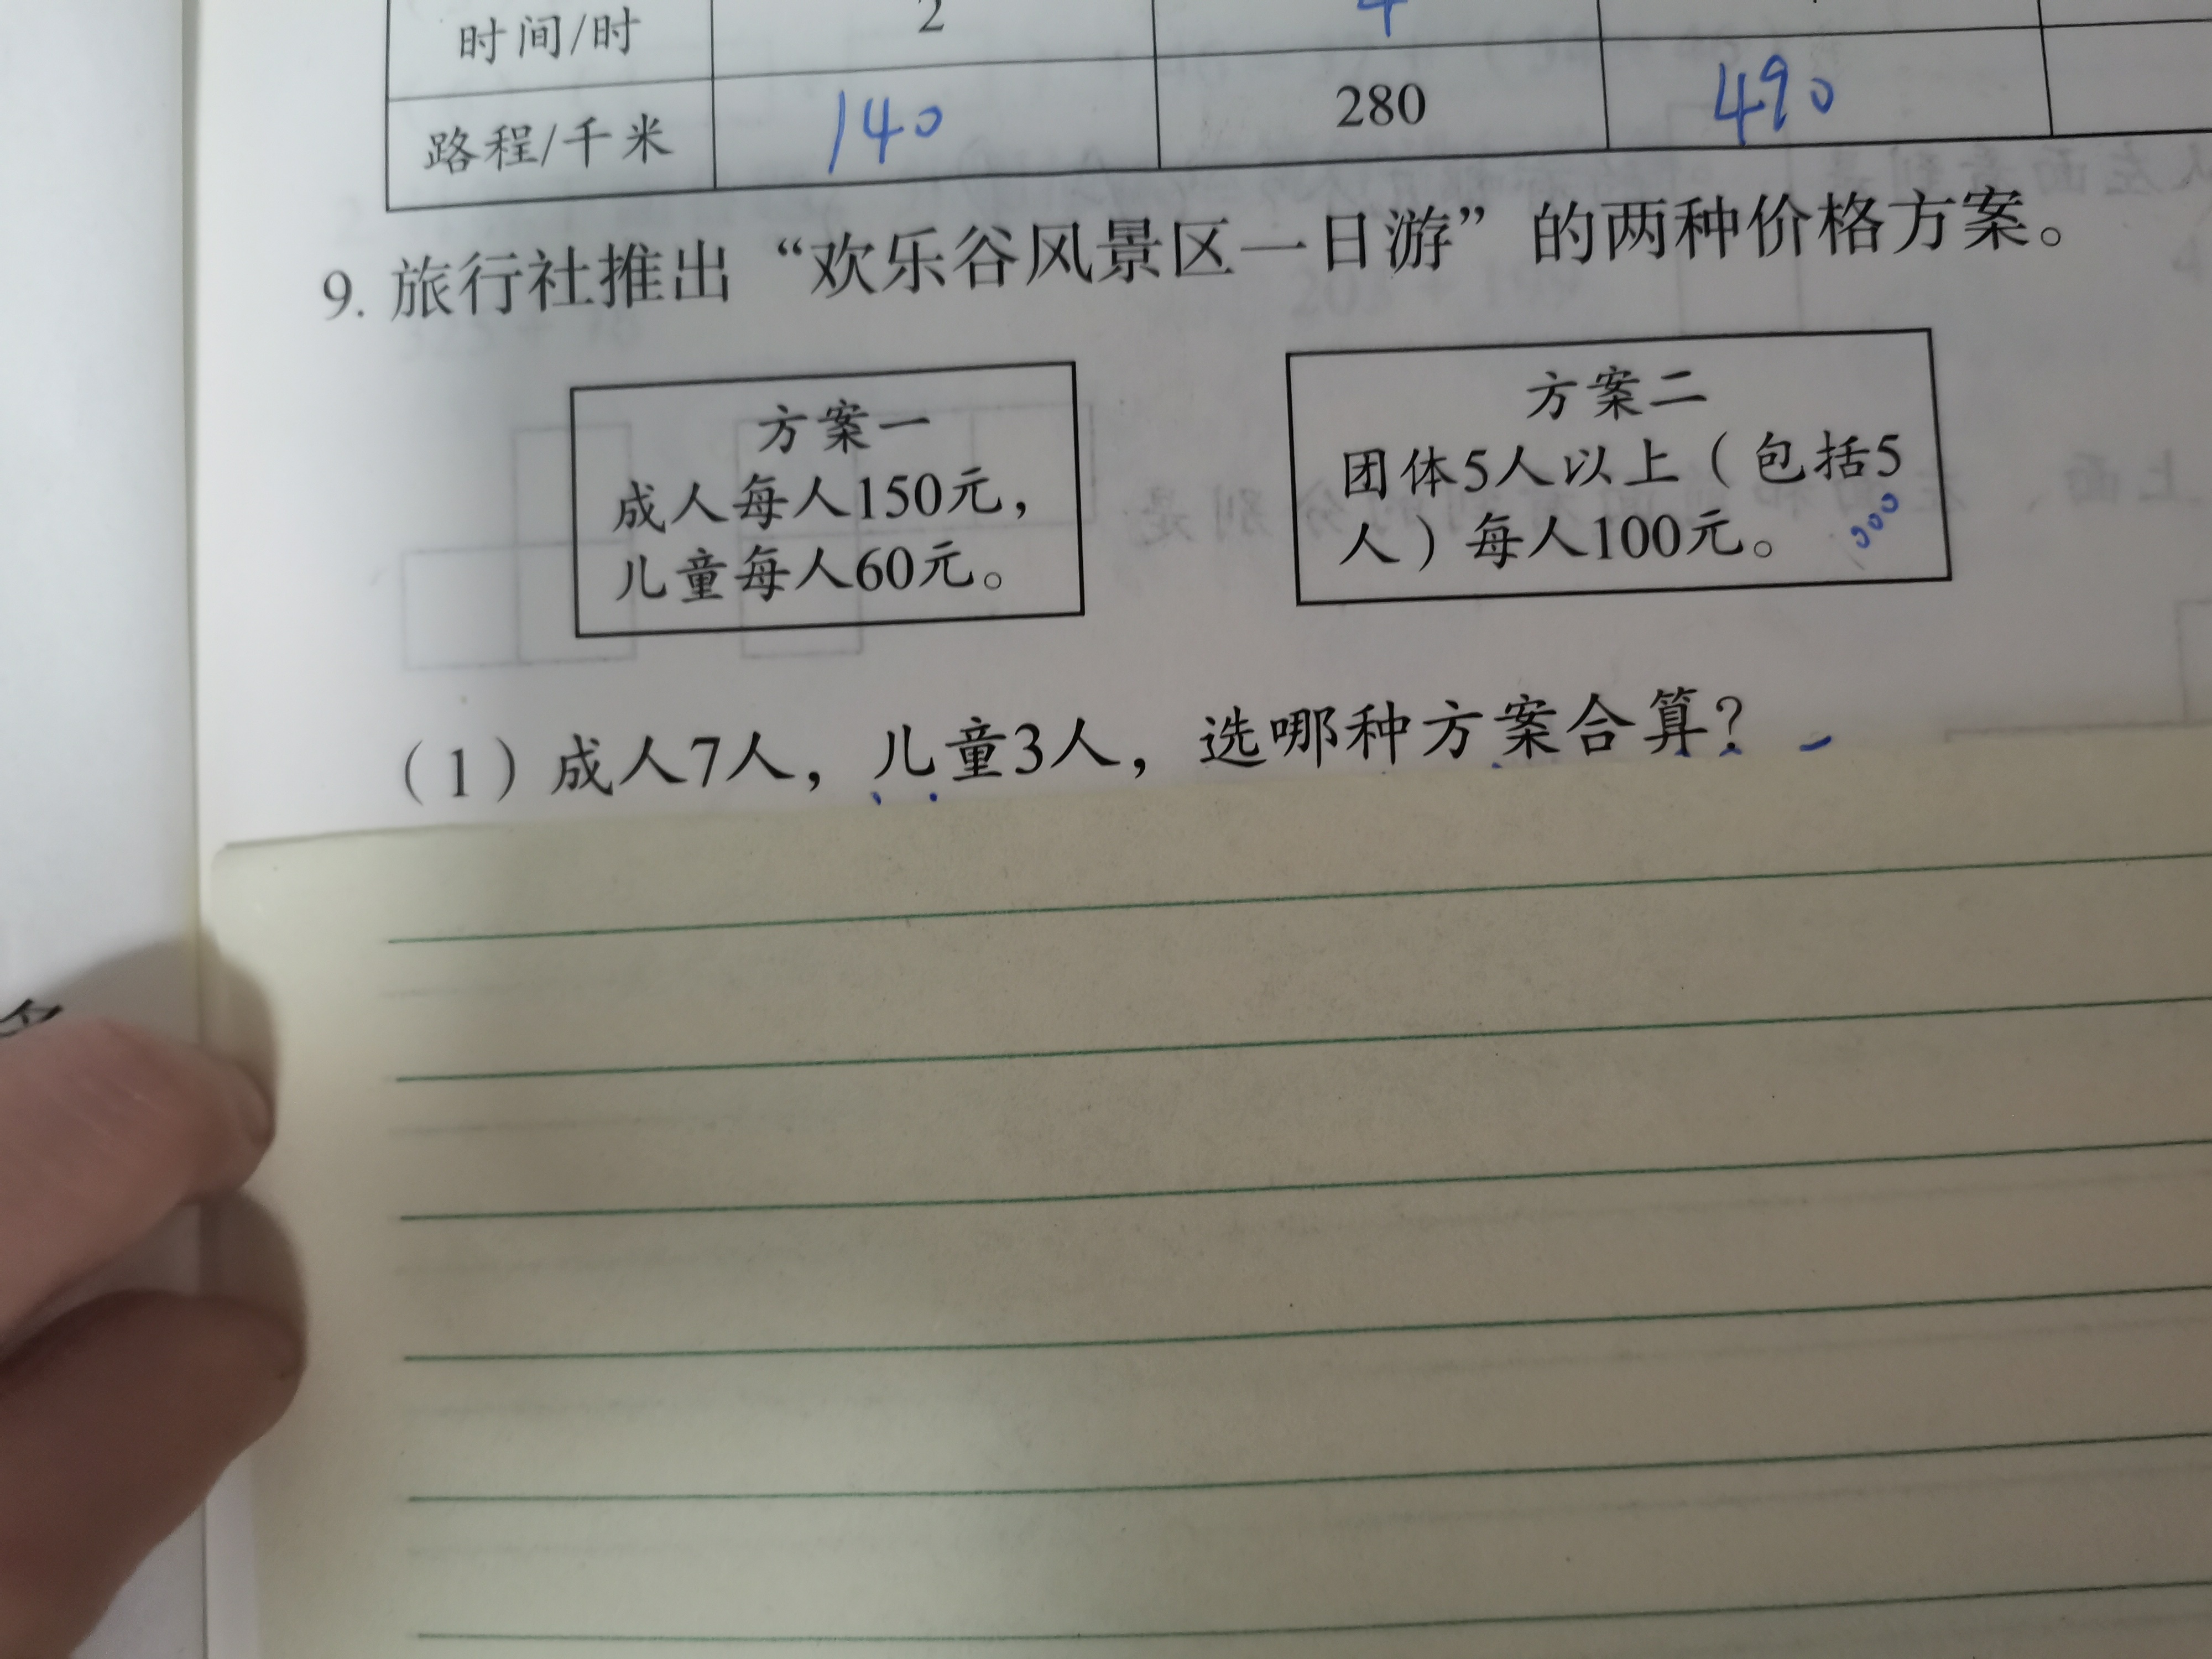 时间/时 2 4
路程/千米 140 280 490
9. 旅行社推出“欢乐谷风景区一日游”的两种价格方案。
方案一
成人每人150元，
儿童每人60元。
方案二
团体5人以上（包括5
人）每人100元。
（1）成人7人，儿童3人，选哪种方案合算？